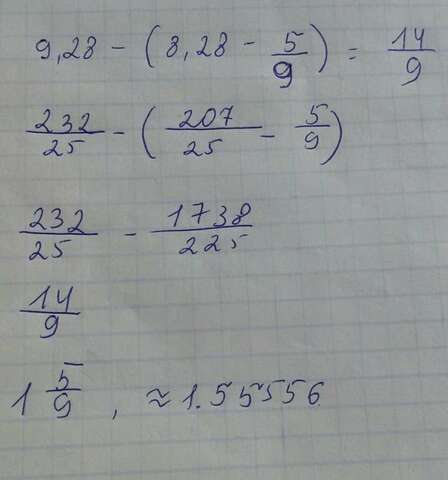 9,28 - (8,28 - 5/9) = 14/9
232/25 - (207/25 - 5/9)
232/25 - 1738/225
14/9
1 5/9 , ≈ 1.55556